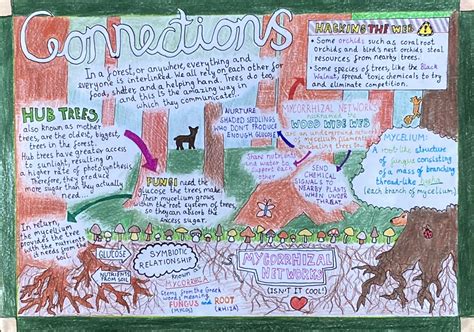 Connections
In a forest, or anywhere, everything and
everyone is interlinked. We all rely on each other for
food, shelter, and a helping hand. Trees do too,
and this is the amazing way in
which they communicate!
HACKING THE WEB
• Some orchids such as coral root
orchids and bird's nest orchids steal
resources from nearby trees.
• Some species of trees, like the Black
Walnut, spread toxic chemicals to try
and eliminate competition.
HUB TREES,
also known as mother
trees, are the oldest, biggest
trees in the forest.
Hub trees have greater access
to sunlight, resulting in
a higher rate of photosynthesis
Therefore, they produce
more sugar than they actually
need...
NURTURE
SHADED SEEDLINGS
WHO DON'T PRODUCE
ENOUGH GLUCOSE
MYCORRHIZAL NETWORKS
nicknamed
WOOD WIDE WEB
are an underground network
of mycelium
trees to...
Share nutrients
and water to
support each
other
SEND
CHEMICAL
SIGNALS TO
NEARBY PLANTS
WHEN UNDER
THREAT
MYCELIUM:
A root-like structure
of fungus consisting
of a mass of branching
thread-like hyphae
(each branch of mycelium)
FUNGI need the
glucose the trees make.
Their mycelium grows
into the root system of trees,
so they can absorb the
excess sugar.
In return,
the mycelium
provides the tree
with the nutrients
it needs from the
soil.
GLUCOSE
NUTRIENTS
FROM SOIL
SYMBIOTIC
RELATIONSHIP
known as
MYCORRHIZA
Stems from the Greek
words meaning
FUNGUS and ROOT
(MYKOS) (RHIZA)
MYCORRHIZAL
NETWORKS
(ISN'T IT COOL!)